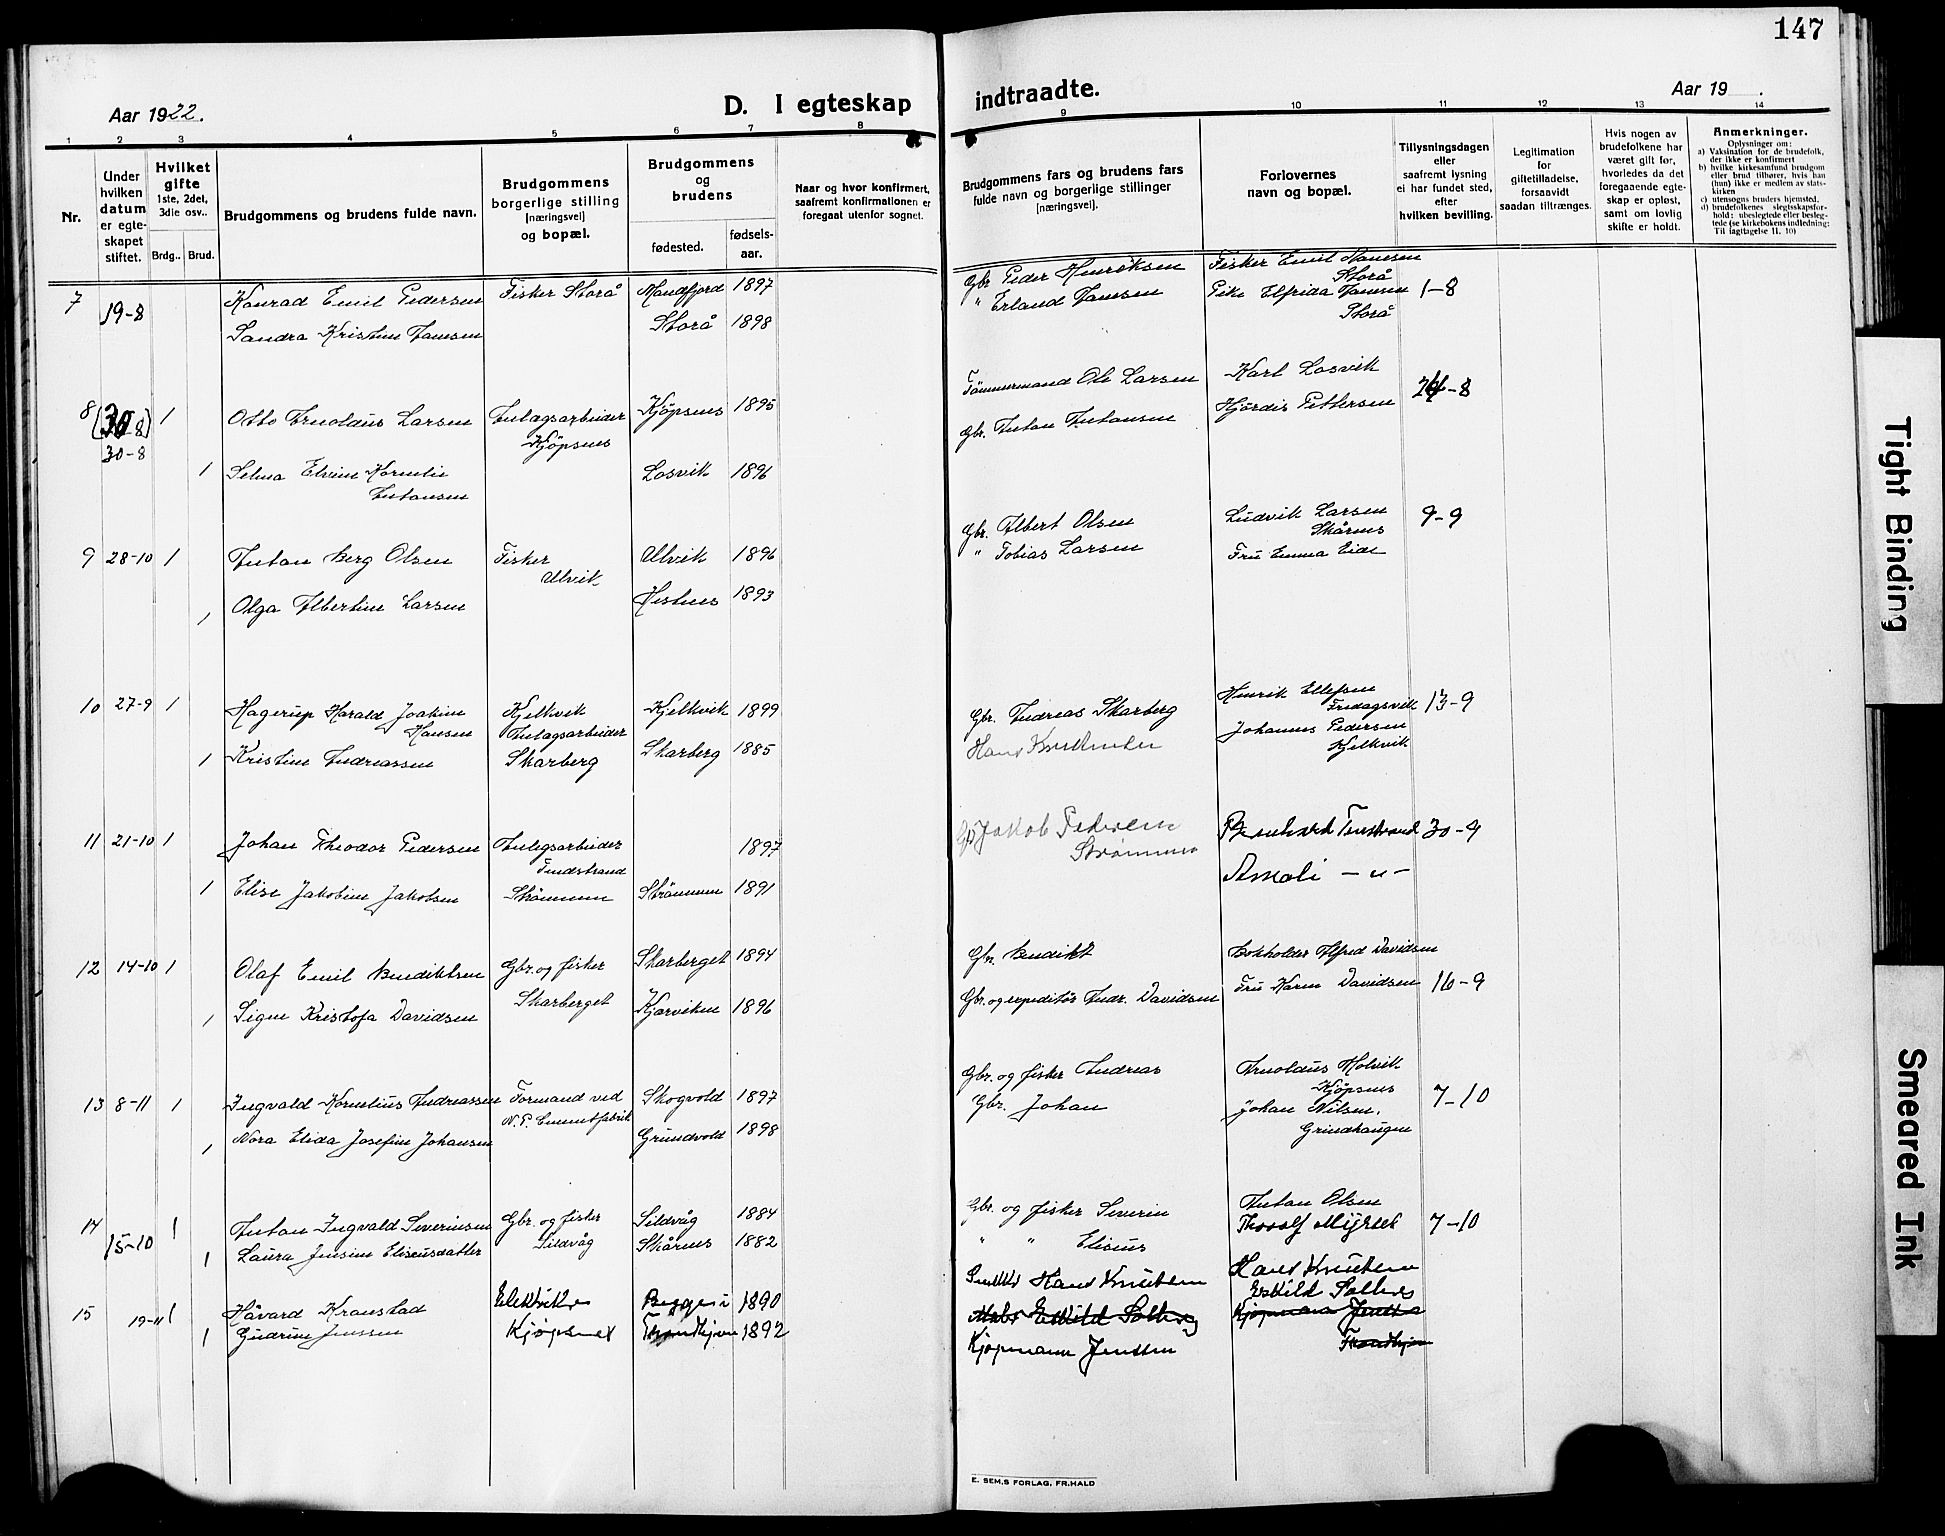 147
Aar 1922.
D. I egteskap
indtraadte.
Aar 19 .
1 2 3 4 5 6 7 8
9 10 11 12 13 14
Nr.
Under hvilken datum er egte- skapet stiftet.
Hvilket gifte 1ste, 2det, 3die osv..
Brdg.. Brud.
Brudgommens og brudens fulde navn.
Brudgommens borgerlige stilling (næringsvei) og bopæl.
Brudgommens og brudens
fødested.
fødsels- aar.
Naar og hvor konfirmert, saafremt konfirmationen er foregaat utenfor sognet.
Brudgommens fars og brudens fars fulde navn og borgerlige stillinger (næringsvei).
Forlovernes navn og bopæl.
Tillysningsdagen eller saafremt lysning ei har fundet sted, efter hvilken bevilling.
Legitimation for giftetilladelse, forsaavidt saadan tiltrænges.
Hvis nogen av brudefolkene har været gift før, hvorledes da det foregaaende egte- skap er opløst, samt om lovlig skifte er holdt.
Anmerkninger.
Oplysninger om:
a) Vaksination for de brudefolk, der ikke er konfirmert
b) hvilke kirkesamfund brudgom eller brud tilhører, hvis han (hun) ikke er medlem av stats- kirken
c) utensogns bruders hjemsted.
d) brudefolkenes slegtsskapsfor- hold: ubeslegtede eller besleg- tede (se kirkebokens indledning: Til iagttagelse 11. 10)
7 19-8 Konrad Emil Pedersen Fisker Storå Mandfjord 1897
Gbr Peder Henriksen Fisker Emil Hansen
Storå
" Erland Jansen Pike Elfrida Jansen 1-8
Storå
Sandra Kristine Jansen Storå 1898
Tømmermand Ole Larsen Karl Losvik
8 (30-8) 1 Otto Arnoldus Larsen Anlægsarbeider Kjöpsnes 1895
30-8 Kjöpsnes
Gbr. Antan Antonsen Hjördis Pettersen -8
1 Selma Elvine Kornelie Losvik 1896
Antonsen
Gbr. Albert Olsen Ludvik Larsen 9-9
Skårnes
" Tobias Larsen Fru Emma Eide
9 28-10 1 Antan Berg Olsen Fisker Ulvik 1896
Ulvik
1 Olga Albertine Larsen Hestnes 1893
10 27-9 1 Hagerup Harald Joakim Kjelkvik Kjelkvik 1899
Hansen Anlagsarbeider
Gbr. Andreas Skarberg Henrik Ellefsen
Fredagsvik 13-9
1 Kristine Andreassen Skarberg Skarberg 1885
Hans Johannes Pedersen
Kjelkvik
11 21-10 1 Johan Theodor Pedersen Anlegsarbeider 1897
Tindstrand
Jakob Pedersen Bernhard 30-9
Strömmen Amali -"-
1 Elise Jakobine Jakobsen Strömmen Strömmen 1891
12 14-10 1 Olaf Emil Bendiktsen Gbr. og fisker Skarberget 1894
Skarberget
Gbr. Bendikt Bokholder Alfred Davidsen
1 Signe Kristofa Davidsen Kjærviken 1896
Gbr. og expeditör Andr. Davidsen Fru Karen Davidsen 16-9
13 8-11 1 Ingvald Kornelius Andreassen Formand ved Skogvold 1897
N. P. Cementfabrik
Gbr. og fisker Andreas Arnoldus Molvik
Kjöpsnes
1 Nora Elida Josefine Johansen Grundvold 1898
Gbr. Johan Johan Nilsen, 7-10
Grindhaugen
14 15-10 1 Antan Ingvald Severinsen Gbr. og fisker Sildvåg 1884
Sildvåg
Gbr. og fisker Severin Antan Olsen
1 Laura Jensine Eliseusdatter Skårnes 1882
" " Eliseus Thorolf Myrnes 7-10
15 19-11 1 Håvard Kranstad 1890
Hans Knutsen Hans Knutsen
Eskild Solberg Eskild Solberg
1 Gudrun Jenssen Kjøpsnes Trondhjem 1892
Kjøpmann Jenssen Kjøpmann Jenssen
Trondhjem
E. SEM,S FORLAG, FR.HALD
Tight Binding
Smeared Ink